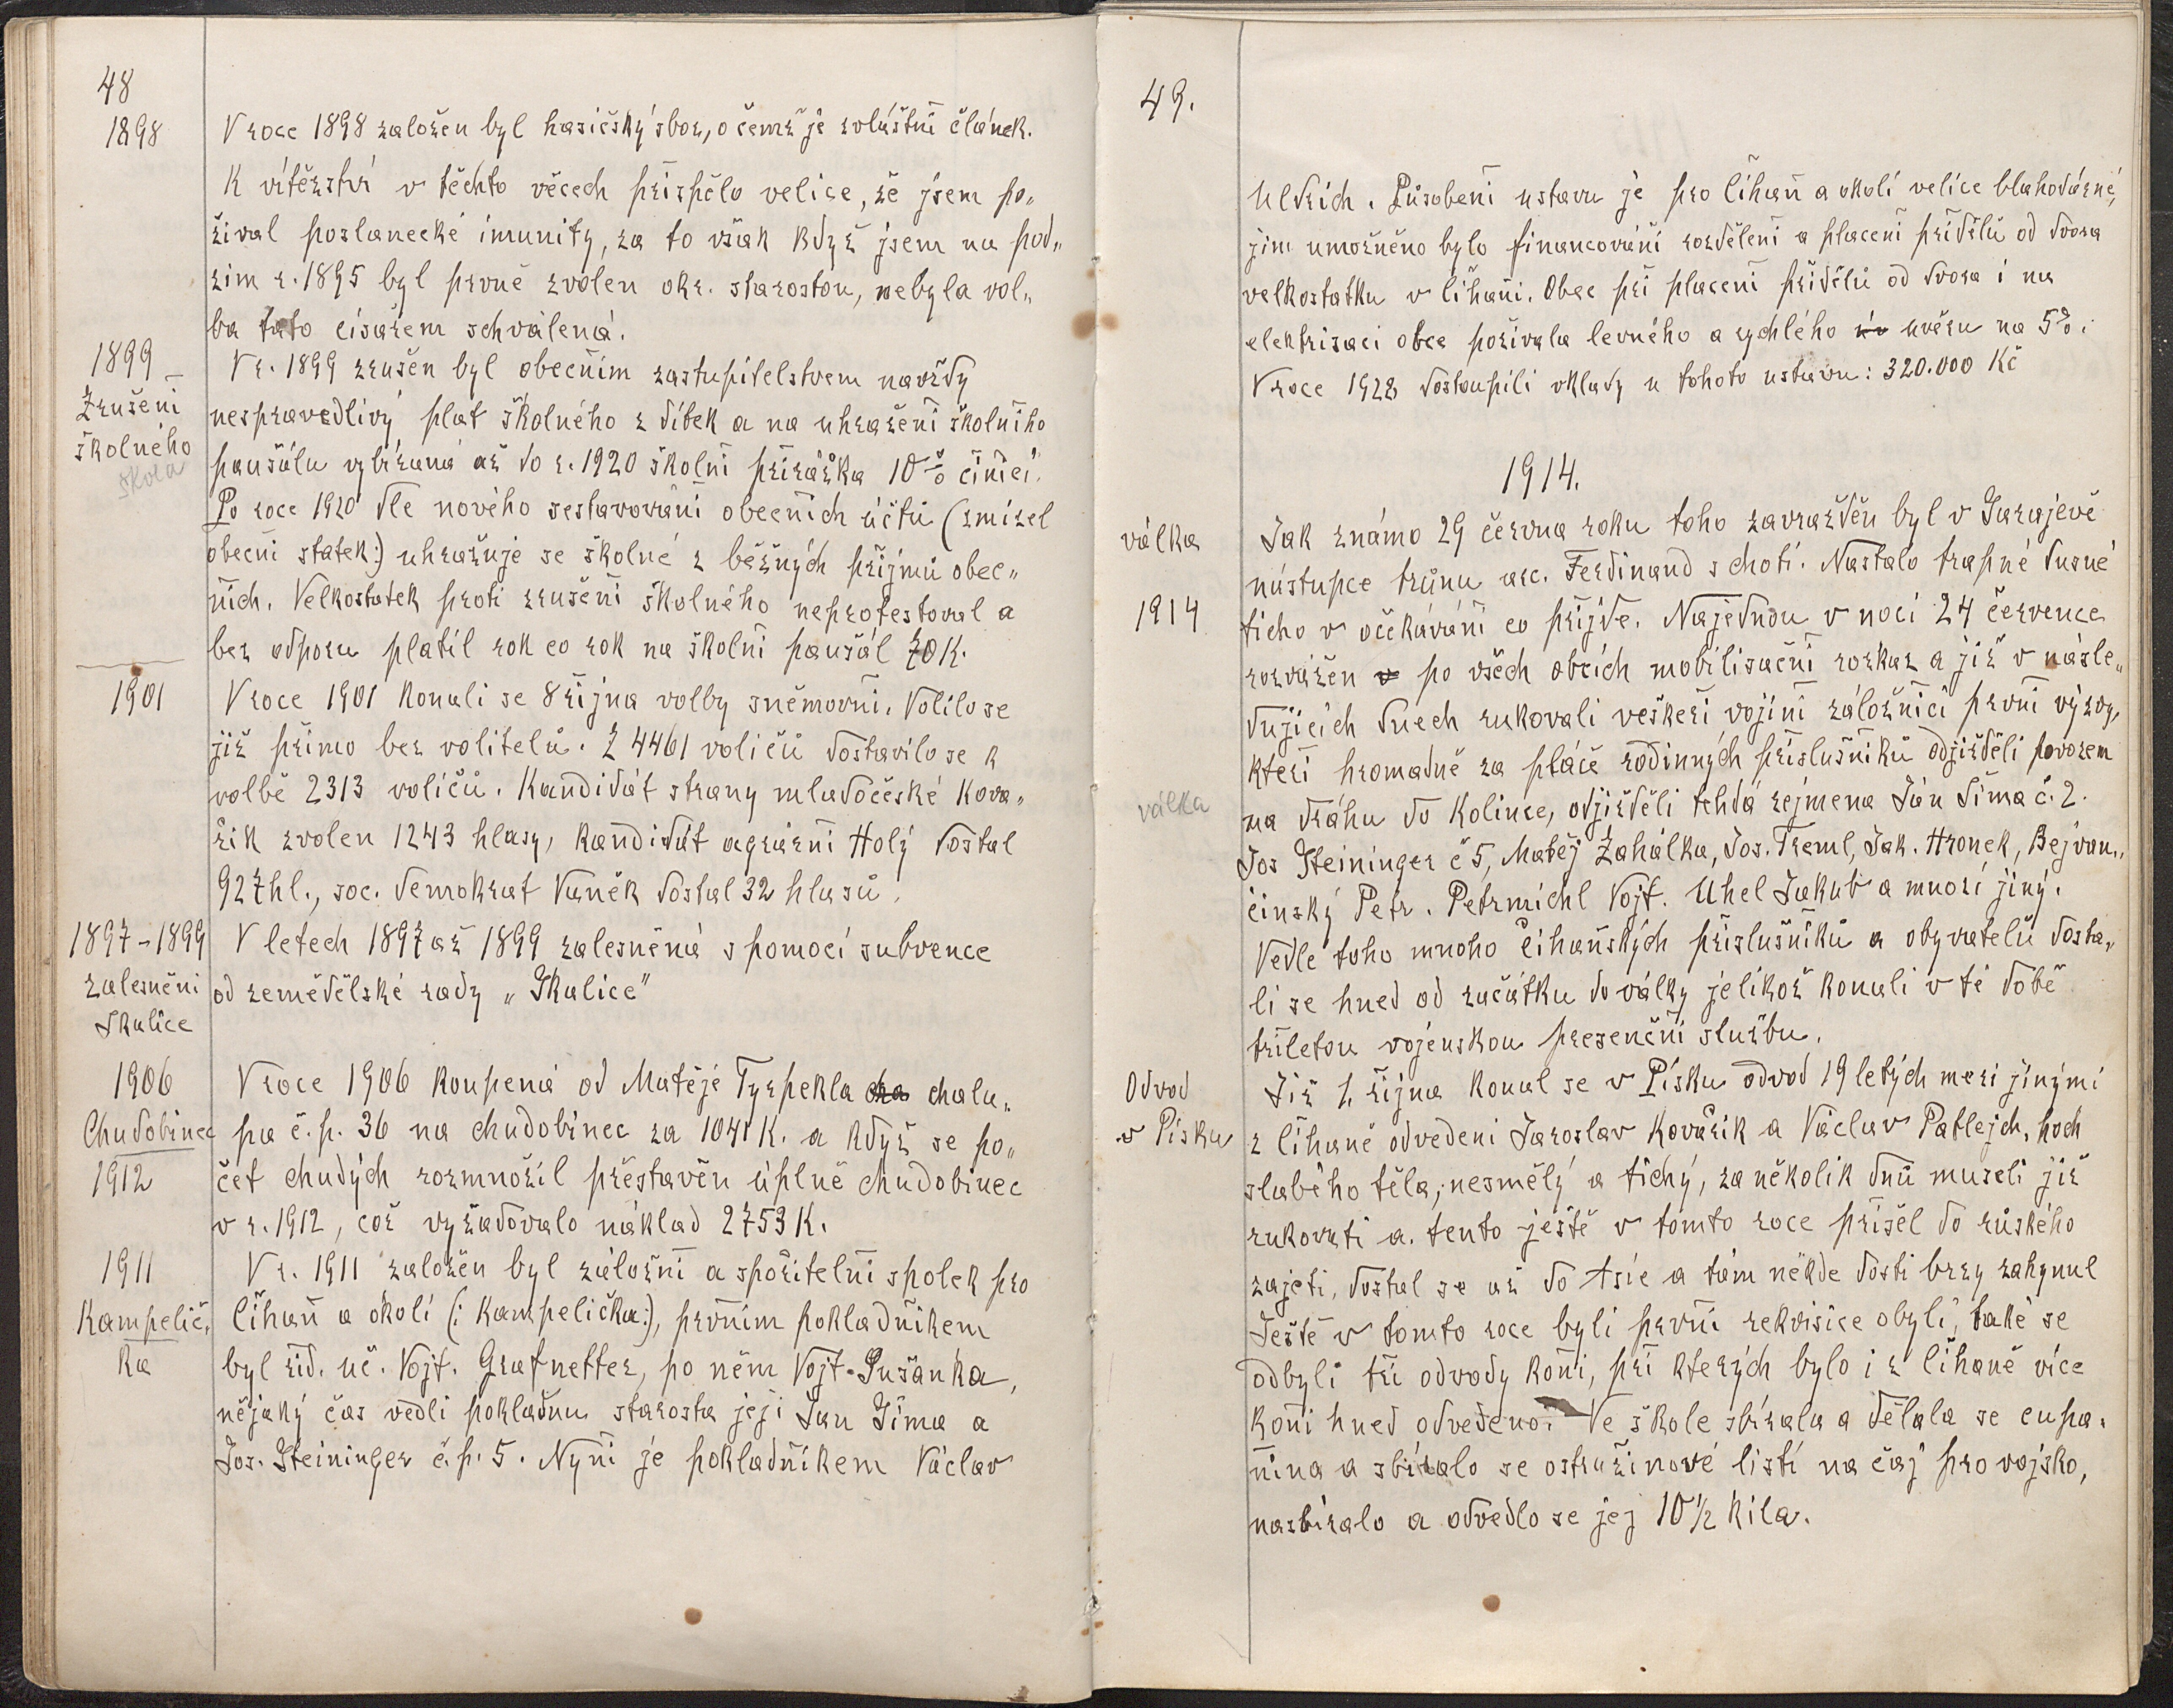 48
1898
V roce 1898 založen byl hasičský sbor, o čemž je zvláštní článek.
K vítězství v těchto věcech přispělo velice, že jsem po„
žíval poslanecké imunity, za to však když jsem na pod„
zim r. 1895 byl prvně zvolen okr. starostou, nebyla vol„
ba tato císařem schválená.
1899
Zrušení
školného
škola
V r. 1899 zrušen byl obecním zastupitelstvem navždy
nespravedlivý plat školného z dítek a na uhražení školního
paušálu vybíraná až do r. 1920 školní přirážka 10% činící.
Po roce 1920 dle nového sestavování obecních účtů (zmizel
obecní statek:) uhražuje se školné z běžných příjmů obec„
ních. Velkostatek proti zrušení školného neprotestoval a
bez odporu platil rok co rok na školní paušál 70 K.
1901
V roce 1901 konali se 8 října volby sněmovní. Volilo se
již přímo bez volitelů. Z 4461 voličů dostavilo se k
volbě 2313 voličů. Kandidát strany mladočeské Kova„
řík zvolen 1243 hlasy, kandidát agrární Holý dostal
927 hl., soc. demokrat Vaněk dostal 32 hlasů.
1897-1899
zalesnění
Skalice
V letech 1897 až 1899 zalesněná s pomocí subvence
od zemědělské rady „Skalice"
1906
Chudobinec
1912
V roce 1906 koupená od Matěje Tyrpekla cha chalu„
pa č.p. 36 na chudobinec za 1041 K. a když se po„
čet chudých rozmnožil přestavěn úplně chudobinec
v r. 1912, což vyžadovalo náklad 2753 K.
1911
Kampelič„
ka
V r. 1911 založen byl záložní a spořitelní spolek pro
Číhaň a okolí (: Kampelička:), prvním pokladníkem
byl říd. uč. Vojt. Grafnetter, po něm Vojt. Pušánka,
nějaký čas vedli pokladnu starosta její Jan Šíma a
Jos. Steininger č.p. 5. Nyní je pokladníkem Václav
49.
Uldrich. Působení ustavu je pro Číhaň a okolí velice blahodárné,
jim umožněno bylo financování rozdělení a placení přídělů od dvora
velkostatku v Číhani. Obec při placení přídělů od dvora i na
elektrisaci obce požívala levného a rychlého úv úvěru na 5%.
V roce 1928 dostoupili vklady u tohoto ustavu: 320.000 Kč
1914.
válka
1914
Jak známo 29 června roku toho zavražděn byl v Sarajevě
nástupce trůnu arc. Ferdinand s chotí. Nastalo trapné dusné
ticho v očekávání co přijde. Najednou v noci 24 července
rozvážen v po všech obcích mobilisační rozkaz a již v násle„
dujících dnech rukovali veškeří vojíni záložníci první výzvy,
kteří hromadně za pláče rodinných příslušníků odjížděli povozem
válka
na dráhu do Kolince, odjížděli tehdá zejmena Ján Šíma č. 2.
Jos Steininger č 5, Matěj Zahálka, Jos. Treml, Jak. Hronek, Bejvan„
činský Petr. Petrmichl Vojt. Uhel Jakub a mnozí jiný.
Vedle toho mnoho Číhaňských příslušníků a obyvatelů dosta„
li se hned od začátku do války jelikož konali v té době
tříletou vojenskou presenční službu.
Odvod
v Písku
Již 1. října konal se v Písku odvod 19 letých mezi jinými
z Číhaně odvedeni Jaroslav Kovařík a Václav Patlejch, hoch
slabého těla, nesmělý a tichý, za několik dnů museli již
rukovati a. tento ještě v tomto roce přišel do rúského
zajetí, dostal se až do Asie a tám někde dosti brzy zahynul
Ještě v tomto roce byli první rekvisice obylí, také se
odbyli tři odvody koní, při kterých bylo i z Číhaně více
koní hned odvedeno. Ve škole sbírala a dělala se cupa„
nina a sbíralo se ostružinové listí na čaj pro vojsko,
nasbíralo a odvedlo se jej 10½ kila.